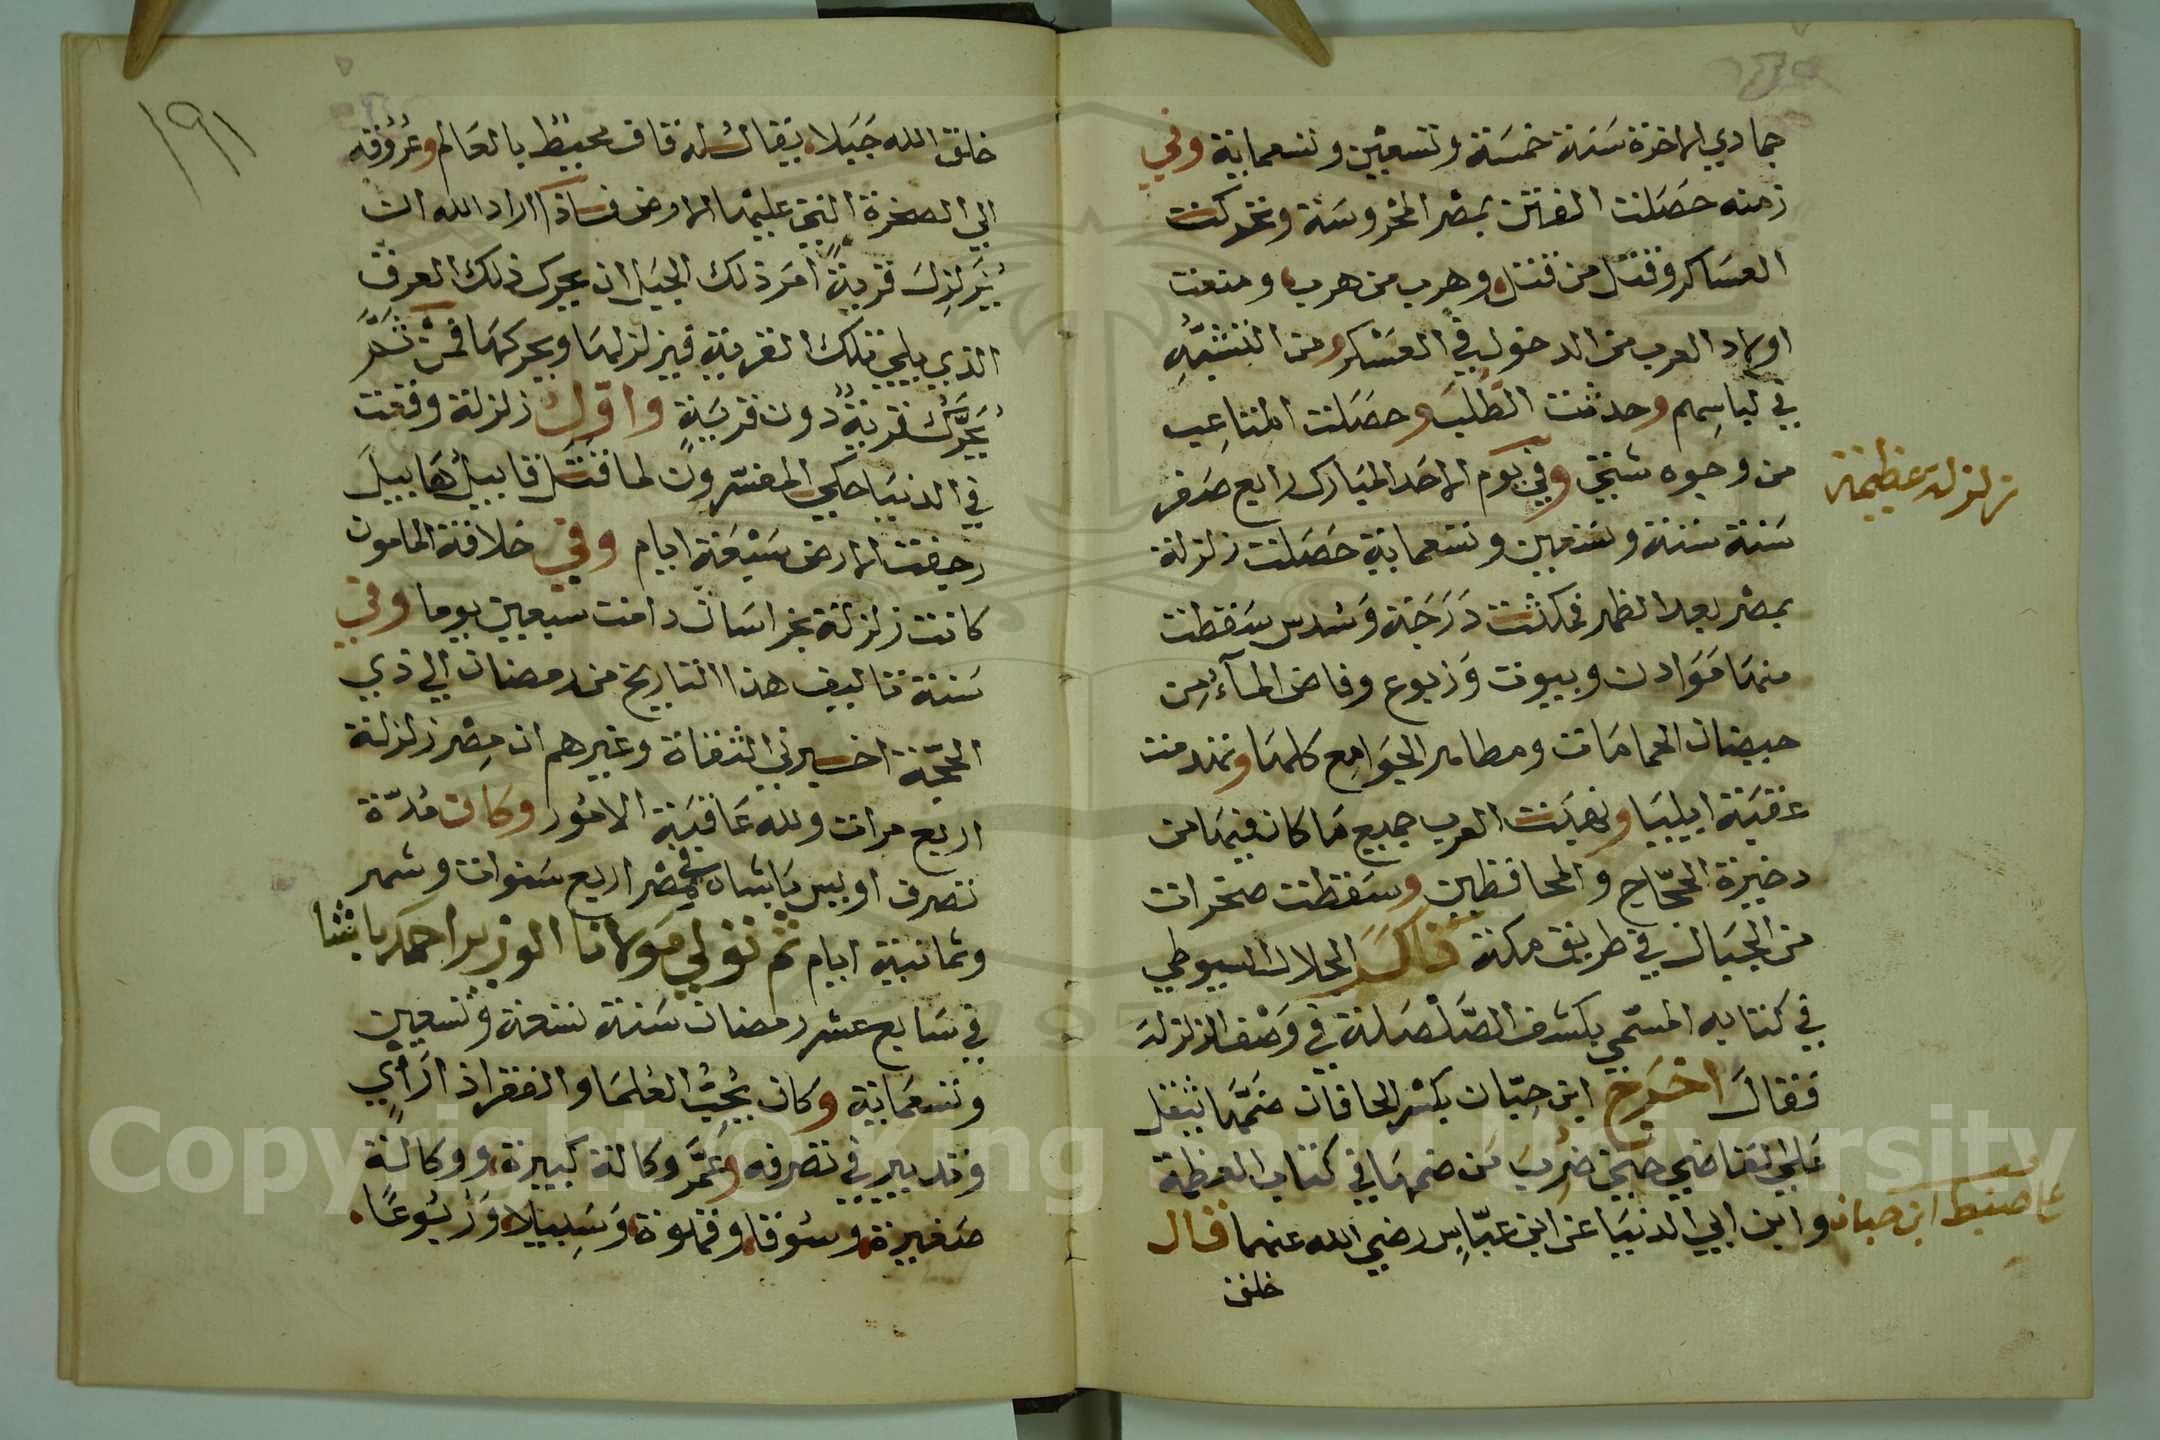 جمادي الاخرة سَنة خمسَة وتسعين وتسعماية وفي
زمنه حَصَلت الفتن بمصْر المحْروسَة وتحركت
العسَاكر وقتل من قتل وهرب من هرب ومنعت
اولاد العرب من الدخول في العسْكر ومن التشبُّه
في لباسِهم وحدثت الطُلبَ وحصَلت المتاعِب
من وجوه شتي وفي يوم الاحَد المبارك رابع صَفر
زلزلة عظيمة
سَنة ستة وتسَعين وتسعماية حَصَلت زلزلة
بمصْر بعد الظهر فمكثت دَرَجَة وَسُدس سَقطت
منها مَوَادن وبيوت وَربوع وفاض المآءُ مِن
حيضان الحمامَات ومطاهر الجوَامِع كلهَا وتهدمت
عقبَة ايليا ونهبَت العرب جميع مَا كان فيهَا من
دخيرة الحجّاج والمحافظين وسَقطت صخرات
من الجبَال في طريق مكة ذكَرَ الجلال السيوطي
في كتابه المسّمي بكشف الصَّلصَلة في وَصْف الزلزله
فقالَ اخرَج ابن حِبّان بكسْر الحا فان ضَمَّها ثقل
عَلي القاضي حتي ضُربَ مَن ضمهَا في كتاب العظمة
علي ضبط ابن حبان
وابن ابي الدنيَا عن ابن عبّاسِ رضي الله عنهما قال
خلق
١٩١
خلق الله جَبَلا يقال له قاف محيط بالعَالم وعُرُوقه
الي الصخرة التي عليها الارض فاذا اراد الله ان
يُزَلزِلَ قريةً امَرَ ذلك الجبَل ان يحرك ذلك العرق
الذي يلي تلك القرية فيزلزلهَا ويحركهَا فمن ثمَّ
تحَرَّك قريةٌ دون قريَةٍ واوّل زلزلة وقعت
في الدنيَا حكي المفسّرون لما قتَل قابيلُ هَابيلَ
رجفت الارض سَبْعَة ايام وفي خلافة المامون
كانت زلزلة بخراسَان دامت سبعين يوما وفي
سَنة تاليف هذا التاريخ من رمضان الي ذي
الحجّة اخبرني الثقاة وغيرهم ان مِصْر زلزلة
اربع مرات ولله عَاقبَة الامُور وكان مُدّة
تصرف اوبيس بَاشاه في مصْر اربع سَنوات وشهر
وثمانية ايام ثم تولي مَولانا الوزير احمد باشا
في سَابع عشر رمضان سَنة تسعة وتسعين
وتسعمَاية وَكان يُحِبُّ العُلمَا والفقرا ذا رَأيٍ
وتدبير في تصرفه وَعَمَّرَ وكالة كبيرة ووكالة
صَغيرة وسُوقا وقهوة وَسَبيلا وَرُبُوعًا